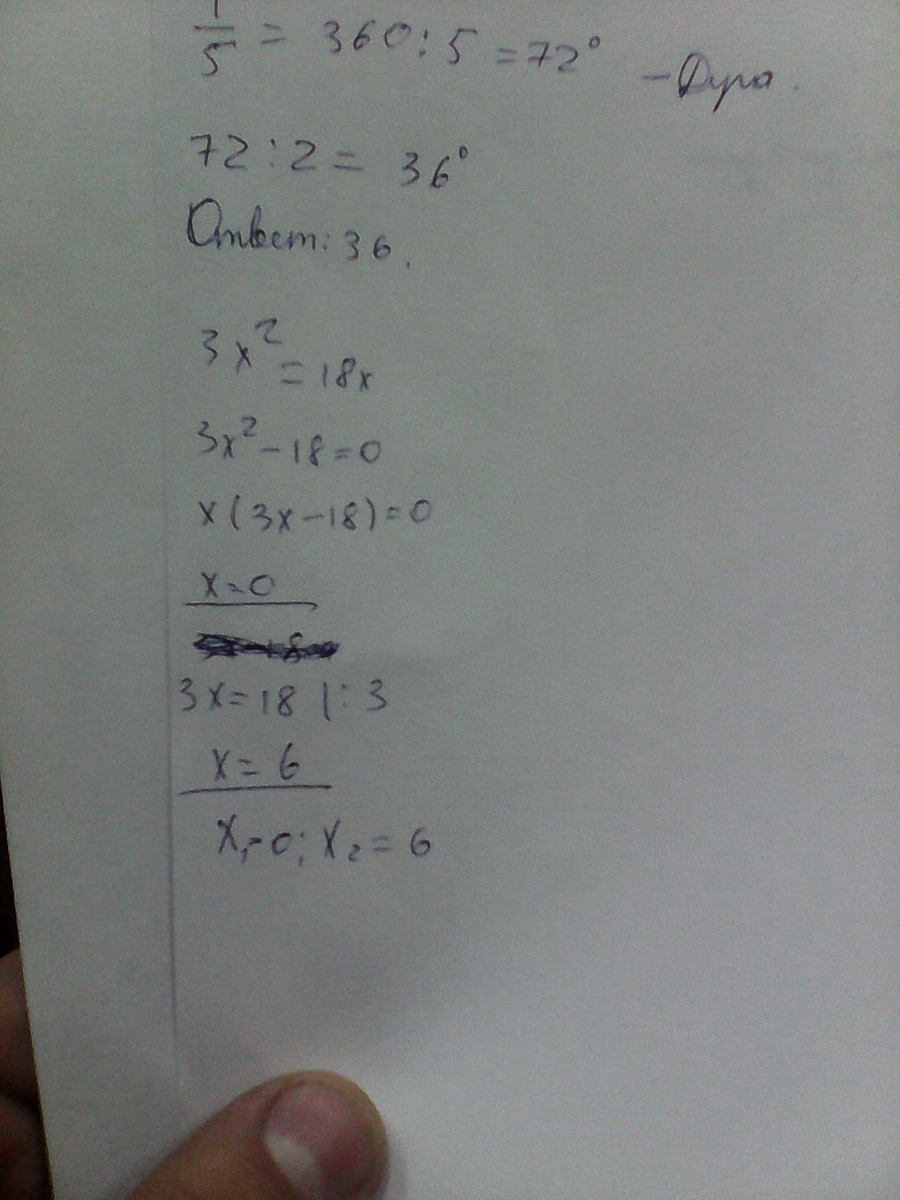 1/5 = 360:5 = 72° – Дуга.
72:2 = 36°
Ответ: 36.
3x² = 18x
3x² – 18 = 0
x(3x – 18) = 0
x = 0
3x = 18 |: 3
x = 6
x₁ = 0; x₂ = 6